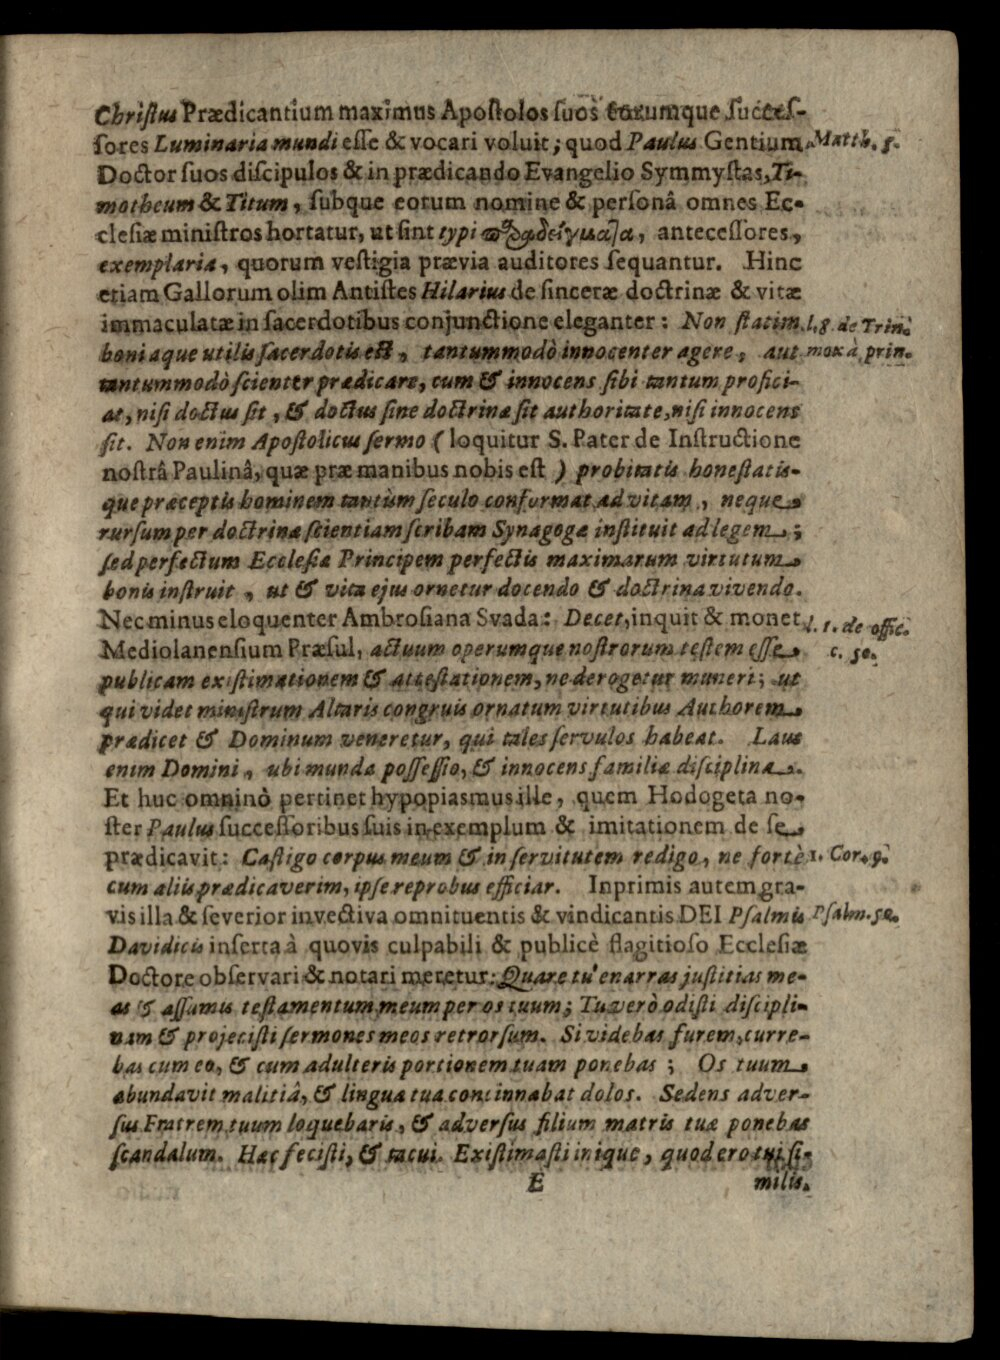 Christus Prædicantium maximus Apostolos suos eorumque succes-
sores Luminaria mundi esse & vocari voluit; quod Paulus Gentium Matth. 5.
Doctor suos discipulos & in prædicando Evangelio Symmystas, Ti-
motheum & Titum, subque eorum nomine & personâ omnes Ec-
clesiæ ministros hortatur, ut sint typi παραδείγματα, antecessores,
exemplaria, quorum vestigia prævia auditores sequantur. Hinc
etiam Gallorum olim Antistes Hilarius de sinceræ doctrinæ & vitæ
immaculatæ in sacerdotibus conjunctione eleganter: Non statim l. 8. de Trin.
boni aque utilis sacerdotis est, tantummodò innocenter agere, aut mox à prin.
tantummodò scienter prædicare, cum & innocens sibi tantum profici-
at, nisi doctus sit, & doctus sine doctrinæ sit authoritate, nisi innocens
sit. Non enim Apostolicus sermo (loquitur S. Pater de Instructione
nostrâ Paulinâ, quæ præ manibus nobis est) probitatis honestatis-
que præceptis hominem tantùm seculo conformat ad vitam, neque
rursum per doctrinæ scientiam scribam Synagogæ instituit ad legem;
sed perfectum Ecclesiæ Principem perfectis maximarum virtutum
bonis instruit, ut & vita ejus ornetur docendo & doctrina vivendo.
Nec minus eloquenter Ambrosiana Svada: Decet, inquit & monet l. 1. de offic.
Mediolanensium Præsul, actuum operumque nostrorum testem esse c. 50.
publicam existimationem & attestationem, ne derogetur muneri; ut
qui videt ministrum Altaris congruis ornatum virtutibus Authorem
prædicet & Dominum veneretur, qui tales servulos habeat. Laus
enim Domini, ubi munda possessio, & innocens familiæ disciplina.
Et huc omninò pertinet hypopiasmus ille, quem Hodogeta no-
ster Paulus successoribus suis in exemplum & imitationem de se
prædicavit: Castigo corpus meum & in servitutem redigo, ne fortè 1. Cor. 9.
cum aliis prædicaverim, ipse reprobus efficiar. Inprimis autem gra-
vis illa & severior invectiva omnituentis & vindicantis DEI Psalmis Psalm. 50.
Davidicis inserta à quovis culpabili & publicè flagitioso Ecclesiæ
Doctore observari & notari meretur: Quare tu enarras justitias me-
as & assumis testamentum meum per os tuum; Tu verò odisti discipli-
nam & projecisti sermones meos retrorsum. Si videbas furem, curre-
bas cum eo, & cum adulteris portionem tuam ponebas; Os tuum
abundavit malitiâ, & lingua tua concinnabat dolos. Sedens adver-
sus Fratrem tuum loquebaris, & adversus filium matris tuæ ponebas
scandalum. Hæc fecisti, & tacui. Existimasti inique, quod ero tui si-
E milis.